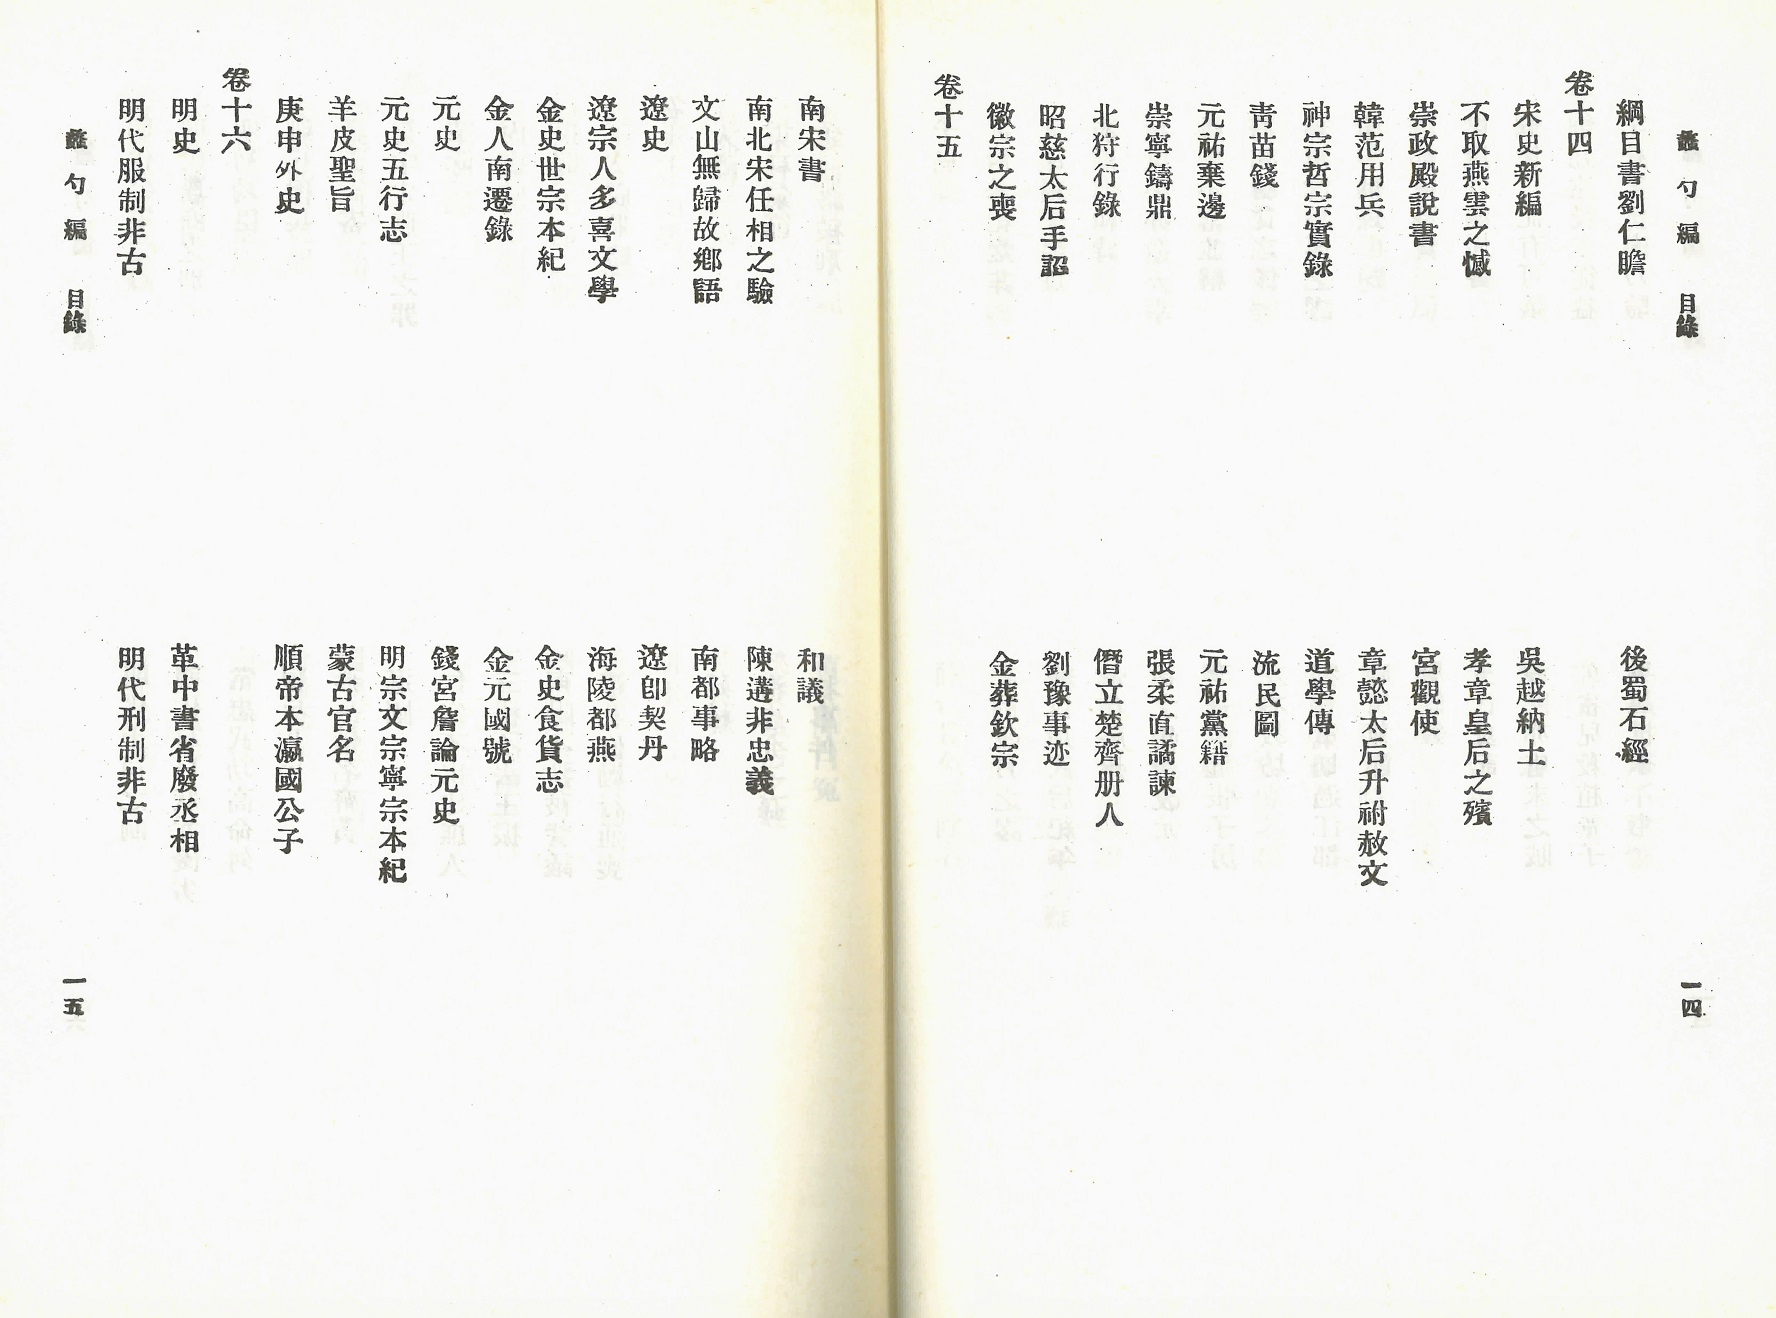 蠡勺編 目錄 一四
綱目書劉仁瞻
後蜀石經
卷十四
宋史新編
吳越納土
不取燕雲之憾
孝章皇后之殯
崇政殿說書
宮觀使
韓范用兵
章懿太后升祔赦文
神宗哲宗實錄
道學傳
靑苗錢
流民圖
元祐棄邊
元祐黨籍
崇寧鑄鼎
張柔直譎諫
北狩行錄
僭立楚齊册人
昭慈太后手詔
劉豫事迹
徽宗之喪
金葬欽宗
卷十五
南宋書
和議
南北宋任相之驗
陳遘非忠義
文山無歸故鄉語
南都事略
遼史
遼卽契丹
遼宗人多喜文學
海陵都燕
金史世宗本紀
金史食貨志
金人南遷錄
金元國號
元史
錢宮詹論元史
元史五行志
明宗文宗寧宗本紀
羊皮聖旨
蒙古官名
庚申外史
順帝本瀛國公子
卷十六
明史
革中書省廢丞相
明代服制非古
明代刑制非古
蠡勺編 目錄 一五